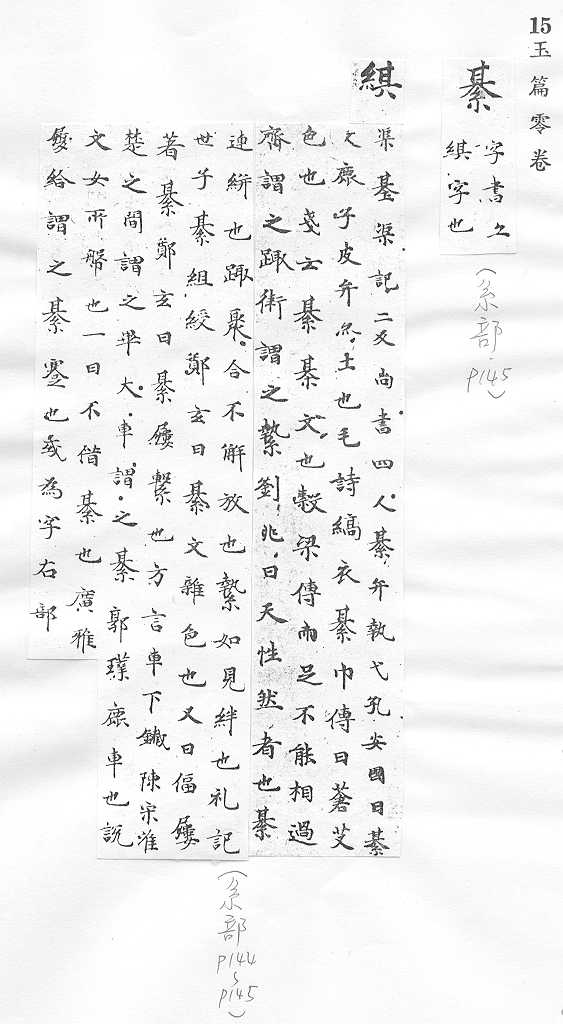 15
玉篇零卷
綦
字書亦
綨字也
(糸部・P145)
綨
渠基渠記二反尚書四人綦弁執弋孔安國曰綦
文鹿子皮弁 士也毛詩縞衣綦巾傳曰蒼艾
色也戔云綦綦文也穀梁傳兩足不能相過
齊謂之踙衛謂之縶劉兆曰天性然者也綦
連絣也踙聚合不解放也縶如見絆也礼記
世子綦組綬鄭玄曰綦文雜色也又曰偪屨
著綦鄭玄曰綦屨繫也方言車下鐵陳宋淮
楚之間謂之畢大車謂之綦郭璞鹿車也說
文女所幣也一曰不借綦也廣雅
屨紟謂之綦蹇也或為字右部
(糸部P144~P145)